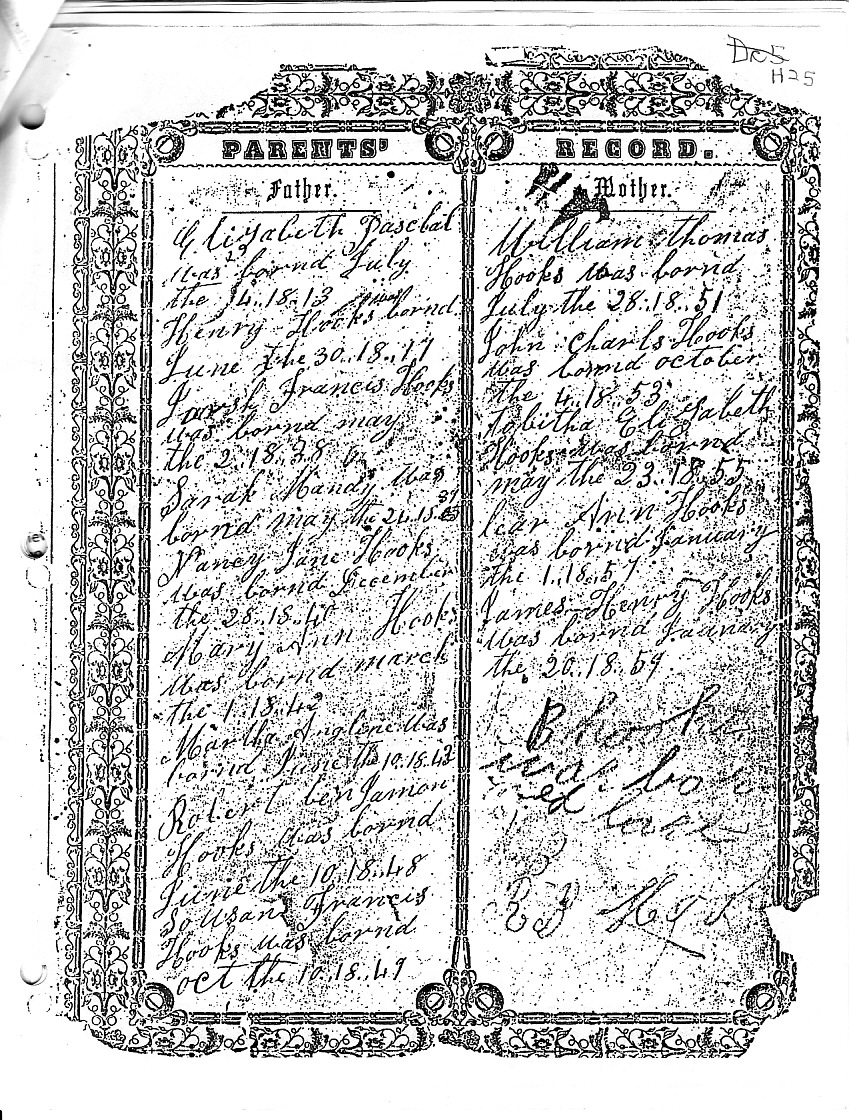 H25
PARENTS' RECORD.
Father.
Elizabeth Paschal
was bornd July
the 14..18.13
Henry Hooks bornd
was
June the 30..18..17
Francis Hooks
was bornd may
the 2..18..38
Sarah Mandy was
bornd may the 24..18
Nancy Jane Hooks
was bornd December
the 28..18..40
Mary Ann Hooks
was bornd march
the 1..18.42
Martha was
bornd June the 10.18.43
Robert benjamon
Hooks was bornd
June the 10.18..48
Sousan Francis
Hooks was bornd
oct the 10..18..49
Mother.
William thomas
Hooks was bornd
July the 28..18..51
John Charls Hooks
was bornd october
the 4.18 53
tobitha Elizabeth
Hooks was bornd
may the 23.18..55
lear Ann Hooks
was bornd January
the 1..18..57
James Henry Hooks
was bornd Jaunary
the 20..18..59